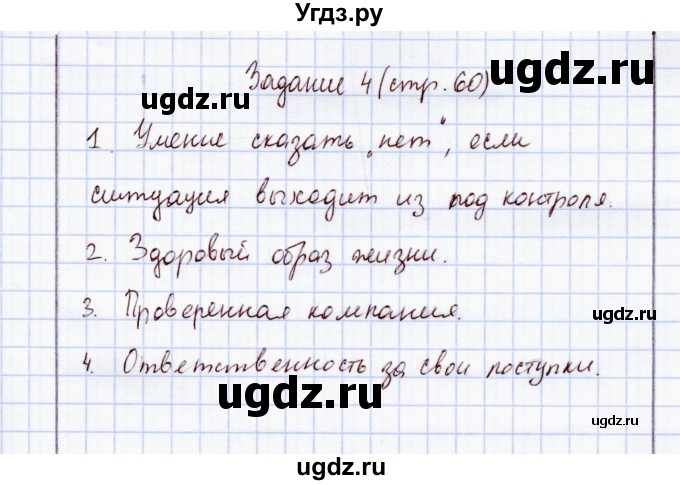 Угдз.ру
Задание 4 (стр. 60)
ugdz.ru
ugdz.ru
1. Умение сказать „нет“, если
ситуация выходит из под контроля.
ugdz.ru
ugdz.ru
2. Здоровый образ жизни.
3. Проверенная компания.
ugdz.ru
4. Ответственность за свои поступки.
ugdz.ru
ugdz.ru
ugdz.ru